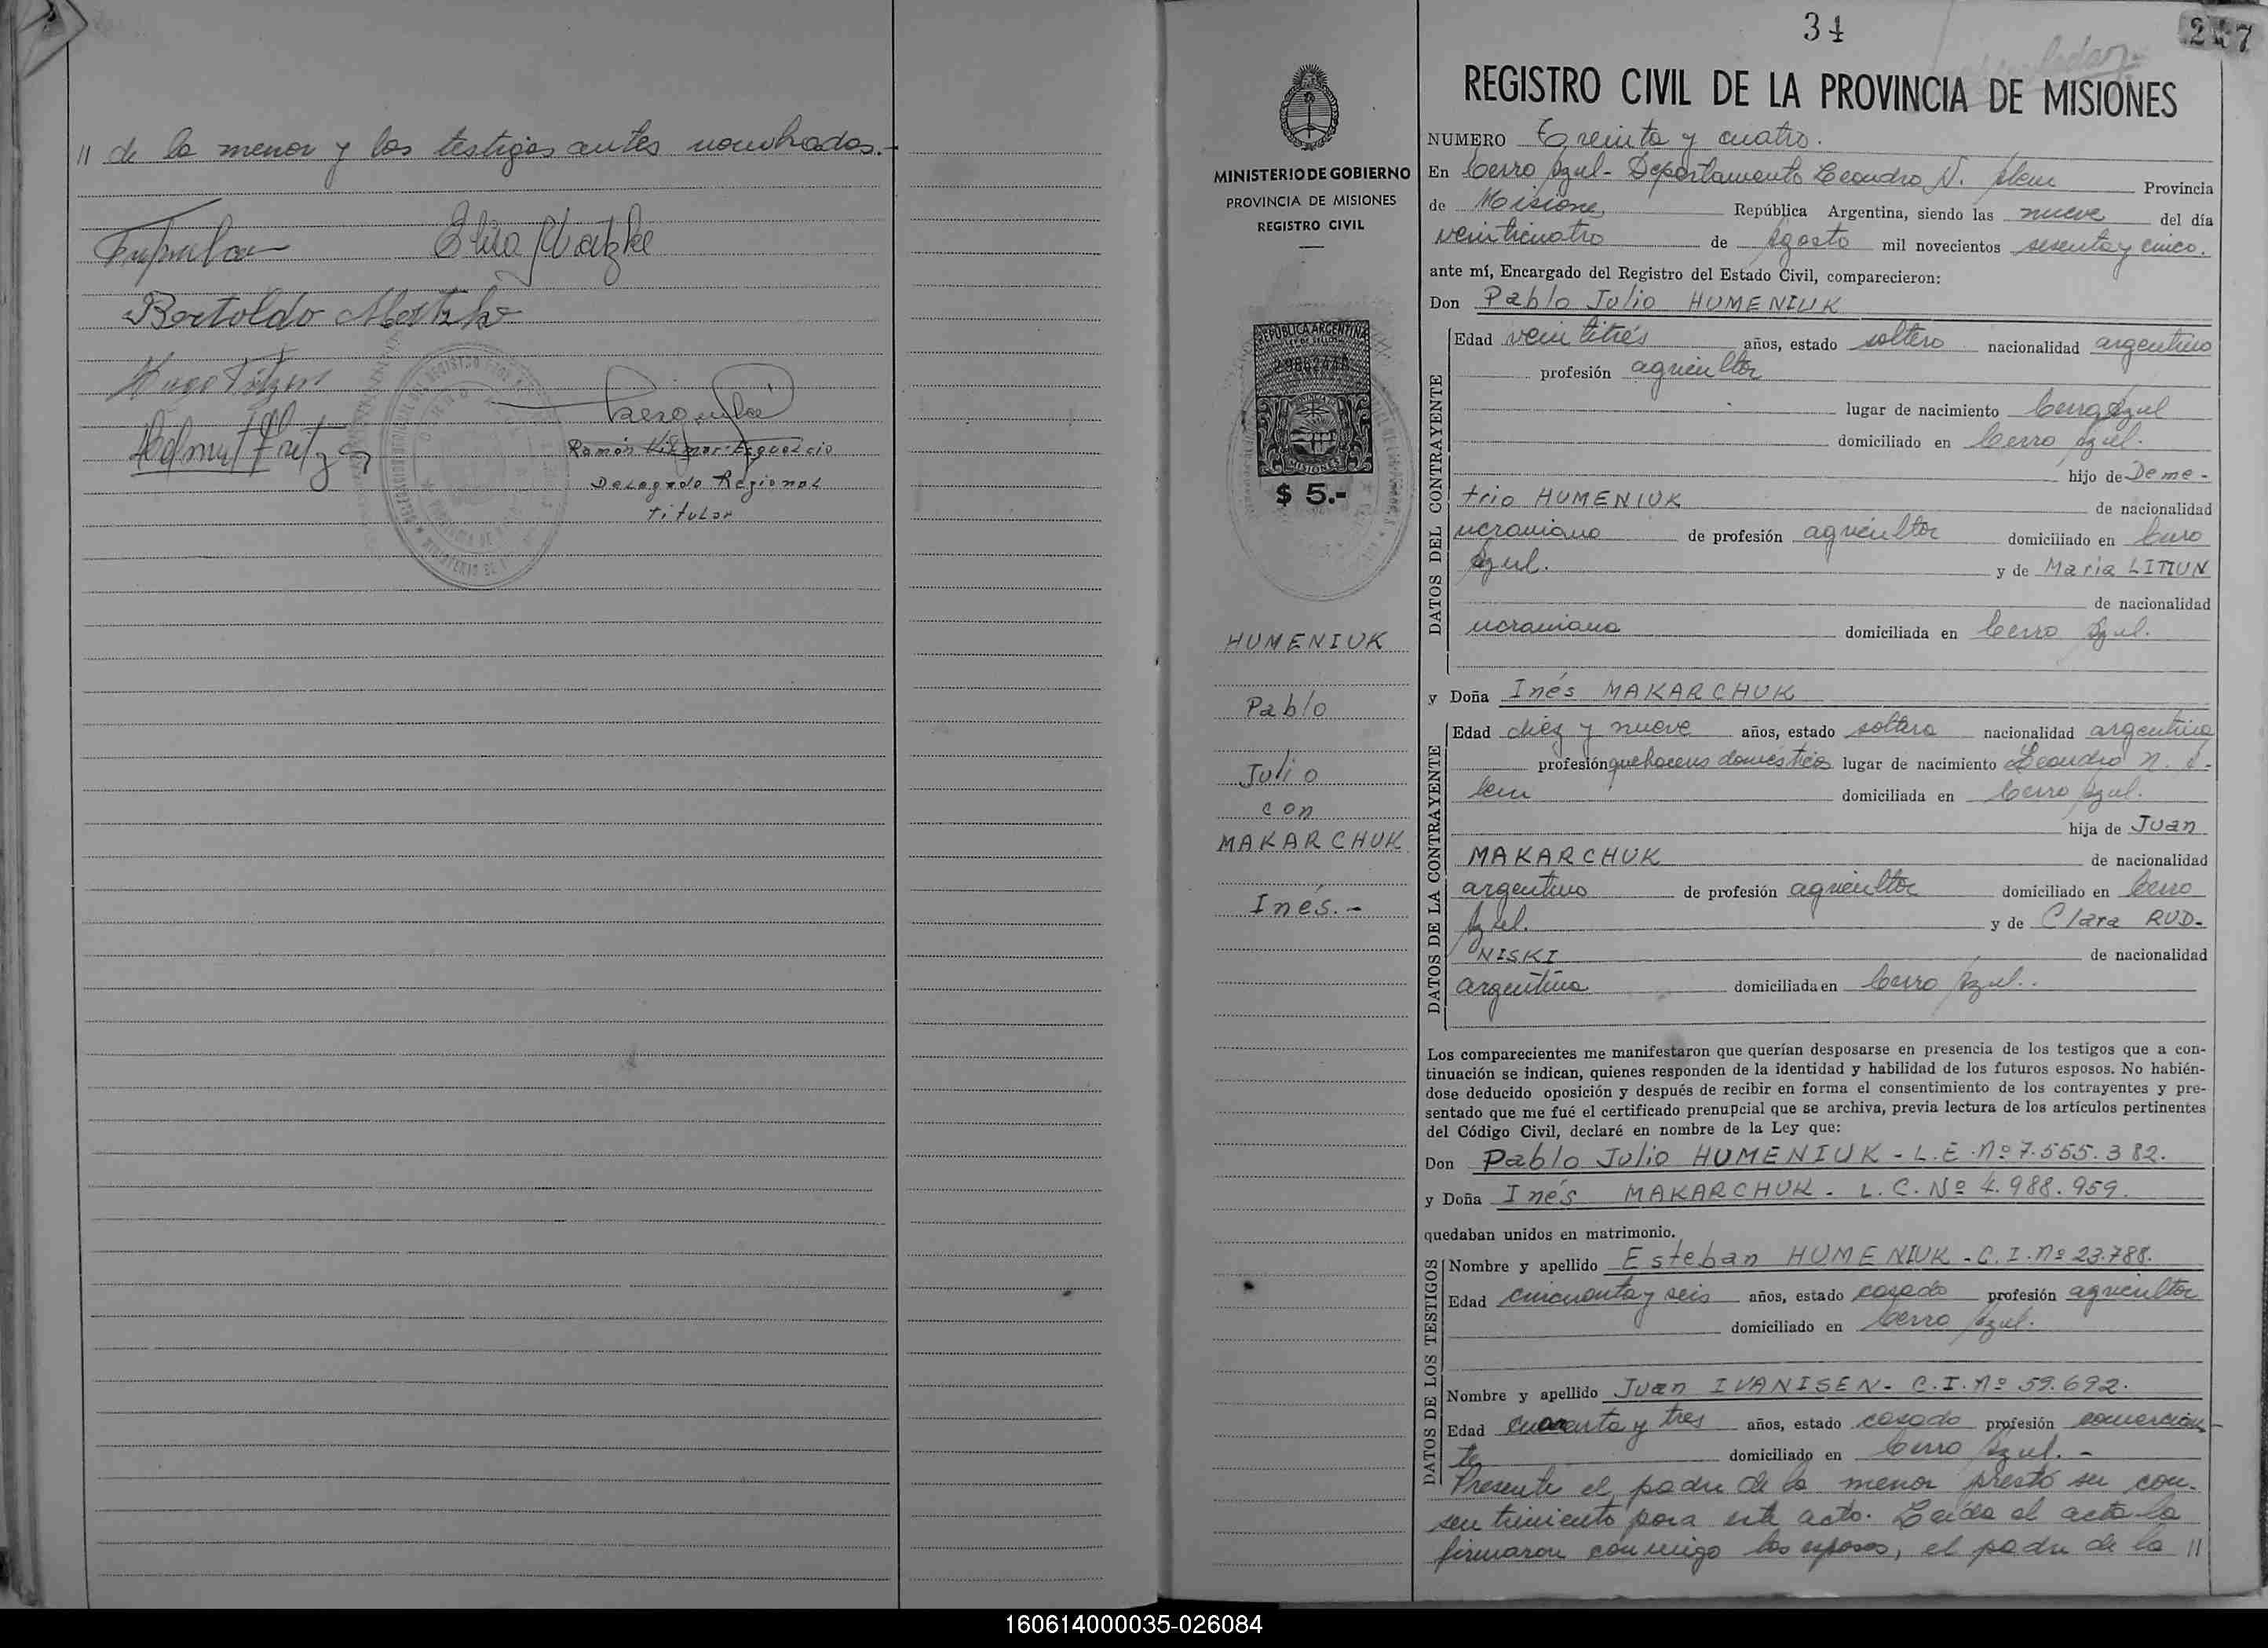 // de la menor y los testigos antes nombrados.-
Bertoldo
Helmut Fritz
Ramón
Delegado Regional
Titular
34
247
REGISTRO CIVIL DE LA PROVINCIA DE MISIONES
MINISTERIO DE GOBIERNO
PROVINCIA DE MISIONES
REGISTRO CIVIL
REPUBLICA ARGENTINA
MISIONES
$ 5.-
HUMENIUK
Pablo
Julio
con
MAKARCHUK
Inés.-
NUMERO Treinta y cuatro.
En Cerro Azul- Departamento Leandro N. Alem Provincia
de Misiones República Argentina, siendo las nueve del día
veinticuatro de Agosto mil novecientos sesenta y cinco.
ante mí, Encargado del Registro del Estado Civil, comparecieron:
Don Pablo Julio HUMENIUK
DATOS DEL CONTRAYENTE
Edad veintitrés años, estado soltero nacionalidad argentino
profesión agricultor
lugar de nacimiento Cerro Azul
domiciliado en Cerro Azul.
hijo de Deme-
trio HUMENIUK de nacionalidad
ucraniano de profesión agricultor domiciliado en Cerro
Azul. y de Maria
de nacionalidad
ucraniana domiciliada en Cerro Azul.
y Doña Inés MAKARCHUK
DATOS DE LA CONTRAYENTE
Edad diez y nueve años, estado soltera nacionalidad argentina
profesión quehaceres domésticos lugar de nacimiento Leandro N. A-
lem domiciliada en Cerro Azul.
hija de Juan
MAKARCHUK de nacionalidad
argentino de profesión agricultor domiciliado en Cerro
Azul. y de Clara RUD-
NISKI de nacionalidad
argentina domiciliada en Cerro Azul..
Los comparecientes me manifestaron que querían desposarse en presencia de los testigos que a con-
tinuación se indican, quienes responden de la identidad y habilidad de los futuros esposos. No habién-
dose deducido oposición y después de recibir en forma el consentimiento de los contrayentes y pre-
sentado que me fué el certificado prenupcial que se archiva, previa lectura de los artículos pertinentes
del Código Civil, declaré en nombre de la Ley que:
Don Pablo Julio HUMENIUK - L.E. Nº 7.555.382.
y Doña Inés MAKARCHUK - L.C. Nº 4.988.959.
quedaban unidos en matrimonio.
DATOS DE LOS TESTIGOS
Nombre y apellido Esteban HUMENIUK - C.I. Nº 23.788.
Edad cincuenta y seis años, estado casado profesión agricultor
domiciliado en Cerro Azul.
Nombre y apellido Juan IVANISEN - C.I. Nº 59.692.
Edad cuarenta y tres años, estado casado profesión comercian-
te domiciliado en Cerro Azul. -
Presente el padre de la menor prestó su con-
sentimiento para este acto. Leída el acta la
firmaron conmigo los esposos, el padre de la //
160614000035-026084